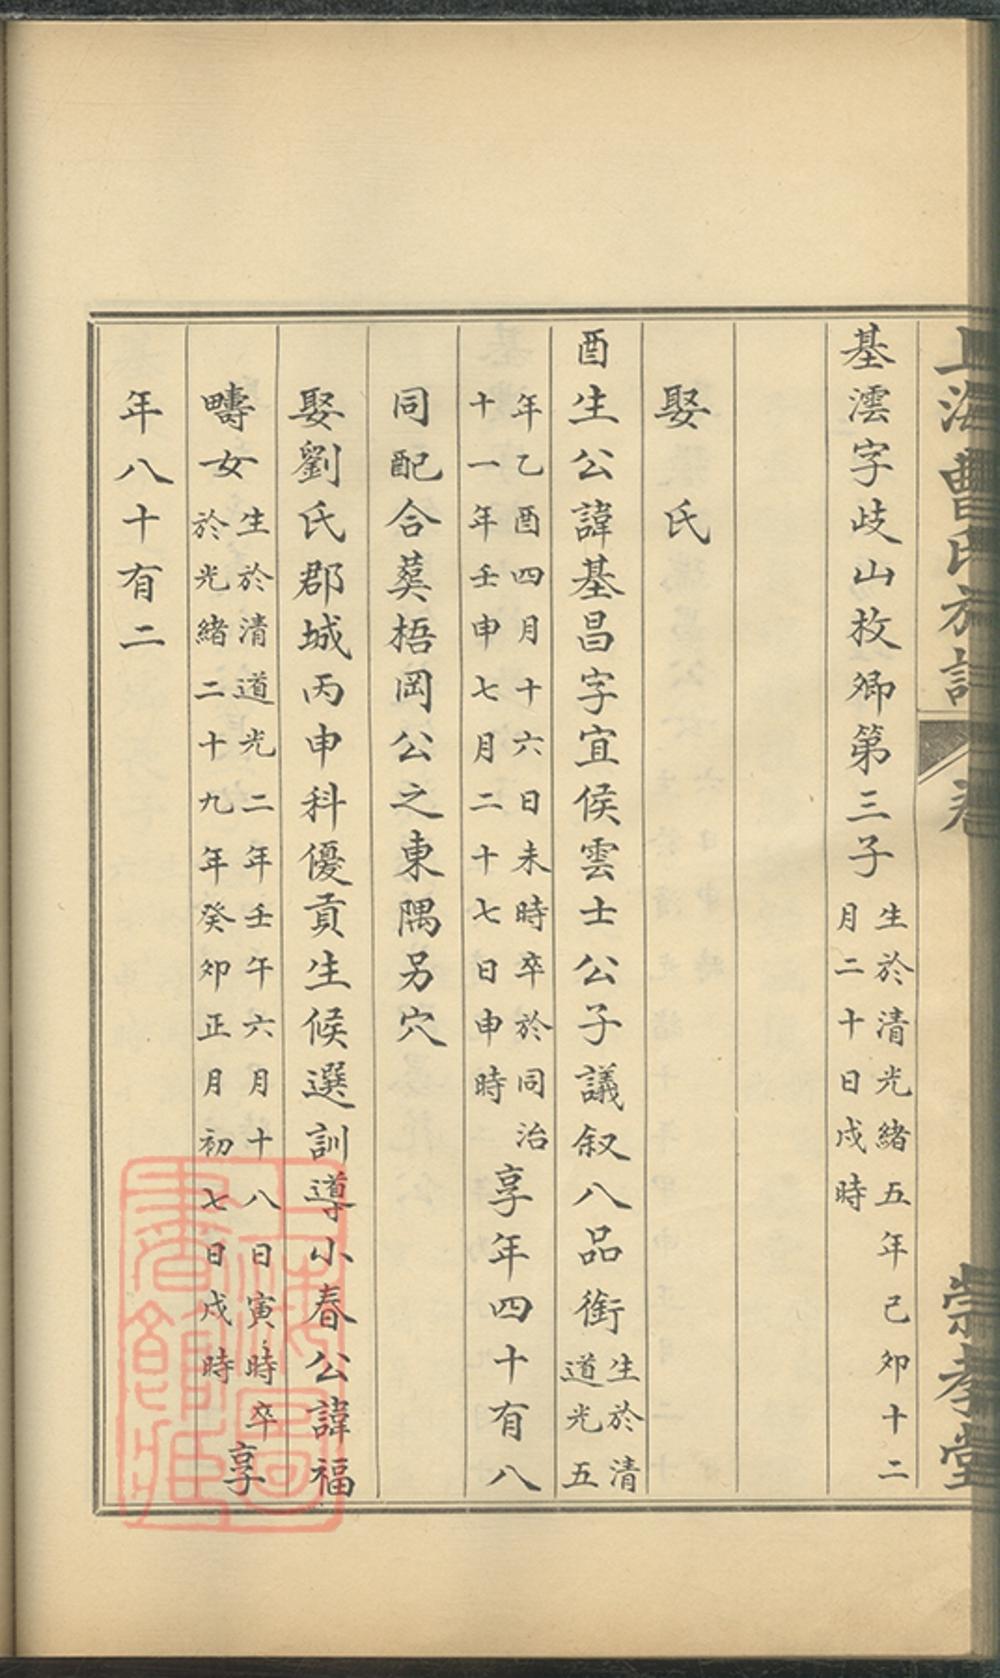 上海曹氏族譜
卷
崇孝堂
基澐字歧山枚卿第三子
生於清光緒五年己卯十二
月二十日戌時
娶 氏
酉生公諱基昌字宜侯雲士公子議叙八品銜
生於清
道光五
年乙酉四月十六日未時卒於同治
十一年壬申七月二十七日申時
享年四十有八
同配合葬梧岡公之東隅另穴
娶劉氏郡城丙申科優貢生候選訓導小春公諱福
疇女
生於清道光二年壬午六月十八日寅時卒
於光緒二十九年癸卯正月初七日戌時
享
年八十有二
上海圖書館藏